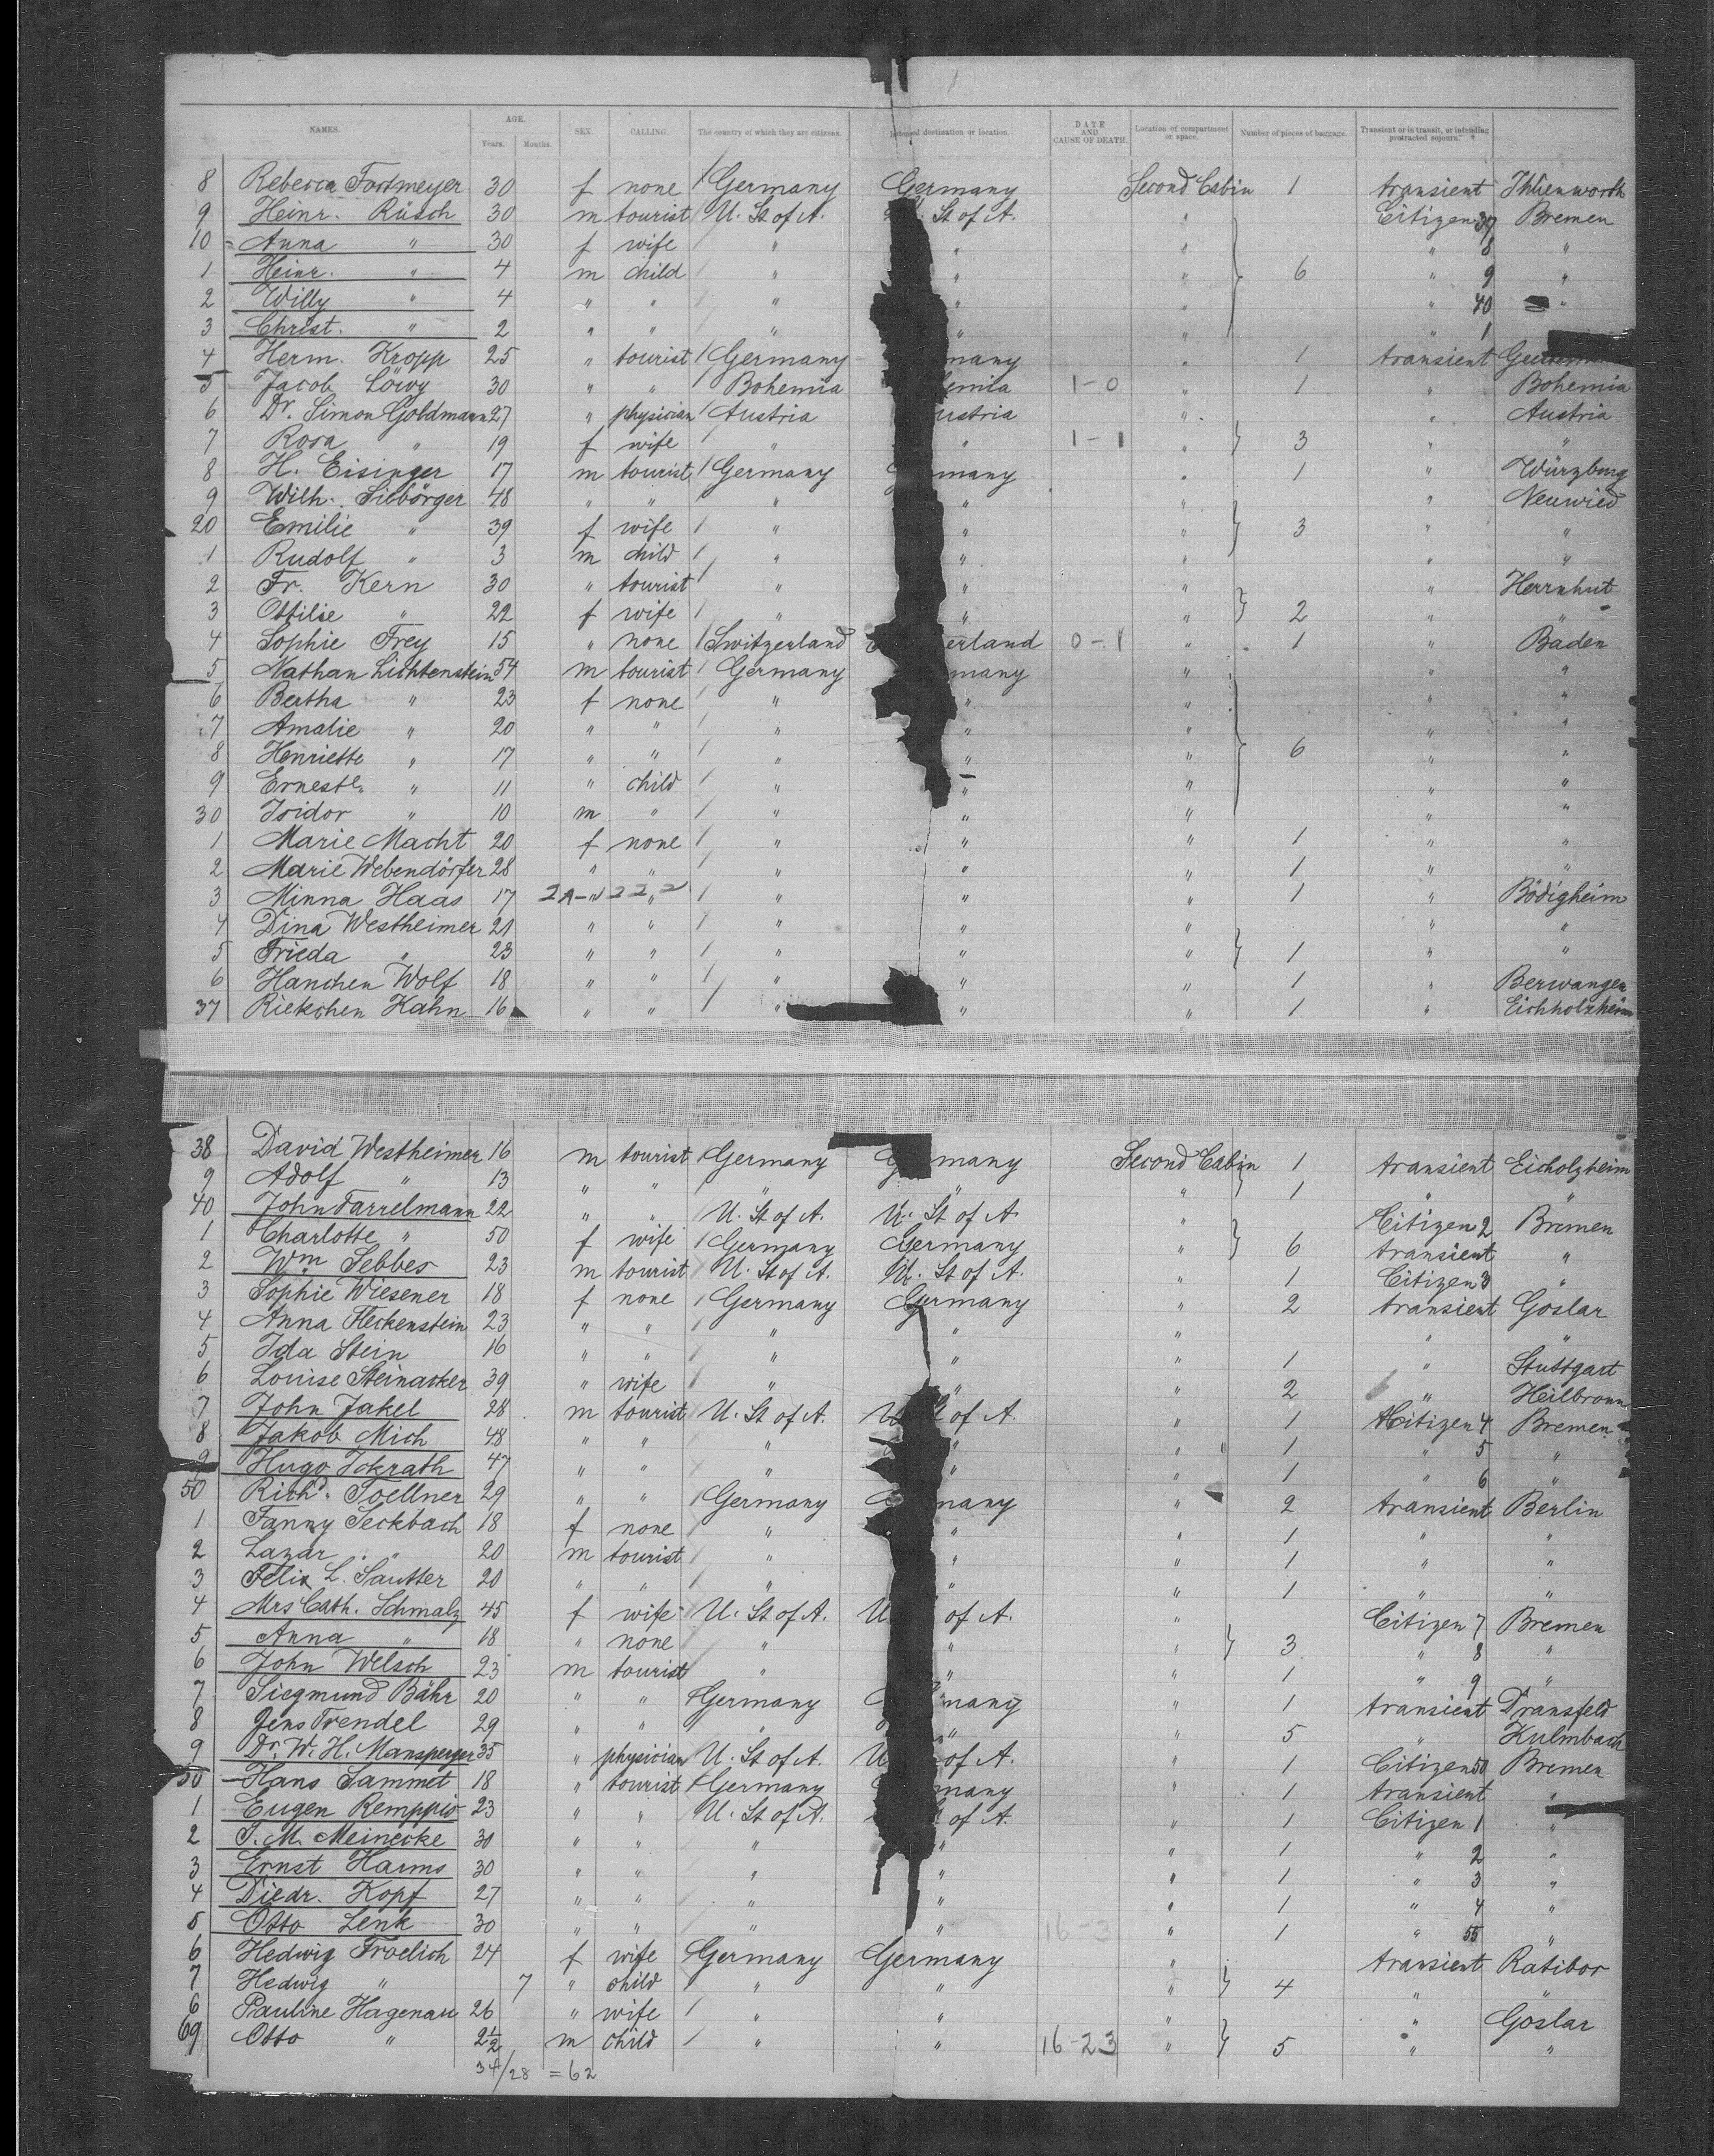 1
NAMES. AGE. Years. Months. SEX. CALLING. The country of which they are citizens. Intended destination or location. DATE AND CAUSE OF DEATH. Location of compartment or space. Number of pieces of baggage. Transient or in transit, or intending protracted sojourn.
8 Rebecca Fortmeyer 30 f none Germany Germany Second Cabin 1 transient Ihlienworth
9 Heinr. Rüsch 30 m tourist U. St of A. St of A. " Citizen 37 Bremen
10 Anna " 30 f wife " " " " 8 "
1 Heinr. " 4 m child " " " 6 " 9 "
2 Willy " 4 " " " " " " 40 "
3 Christ. " 2 " " " " " " 1
4 Herm. Kropp 25 " tourist Germany many " 1 transient
5 Jacob Löwy 30 " " Bohemia emia 1-0 " 1 " Bohemia
6 Dr. Simon Goldmann 27 " physician Austria ustria " " Austria
7 Rosa " 19 f wife " " 1-1 " 3 " "
8 H. Eisinger 17 m tourist Germany many " 1 " Würzburg
9 Wilh. Siebörger 48 " " " " " " Neuwied
20 Emilie " 39 f wife " " " 3 " "
1 Rudolf " 3 m child " " " " "
2 Fr. Kern 30 " tourist " " " " Herrnhut
3 Ottilie " 22 f wife " " " 2 " "
4 Sophie Frey 15 " none Switzerland erland 0-1 " 1 " Baden
5 Nathan Lichtenstein 54 m tourist Germany many " " "
6 Bertha " 23 f none " " " " "
7 Amalie " 20 " " " " " " "
8 Henriette " 17 " " " " " 6 " "
9 Erneste. " 11 " child " " " " "
30 Isidor " 10 m " " " " " "
1 Marie Macht 20 f none " " " 1 " "
2 Marie Webendörfer 28 " " " " " 1 " "
3 Minna Haas 17 " " " " 1 " Bödigheim
4 Dina Westheimer 21 " " " " " " "
5 Frieda " 23 " " " " " 1 " "
6 Hanchen Wolf 18 " " " " " 1 " Berwangen
37 Riekchen Kahn 16 " " " " " 1 " Eichholzheim
38 David Westheimer 16 m tourist Germany G many Second Cabin 1 transient Eicholzheim
9 Adolf " 13 " " " " " 1 " "
40 John Farrelmann 22 " " U. St of A. U. St of A. " Citizen 2 Bremen
1 Charlotte " 50 f wife Germany Germany " 6 transient "
2 Wm Sebbes 23 m tourist U. St of A. U. St of A. " 1 Citizen 3 "
3 Sophie Wiesener 18 f none Germany Germany " 2 transient Goslar
4 Anna Fleckenstein 23 " " " " " " "
5 Ida Stein 16 " " " " " 1 " Stuttgart
6 Louise Steinacker 39 " wife " " " 2 " Heilbronn
7 John Jakel 28 m tourist U. St of A. U of A. " 1 Citizen 4 Bremen
8 Jakob Mich 48 " " " " " 1 " 5 "
9 Hugo Ickrath 47 " " " " " 1 " 6 "
50 Richd. Toellner 29 " " Germany many " 2 transient Berlin
1 Fanny Seckbach 18 f none " " " 1 " "
2 Lazar " 20 m tourist " " " 1 " "
3 Felix L. Sautter 20 " " " " " 1 " "
4 Mrs Cath. Schmalz 45 f wife U. St of A. U of A. " Citizen 7 Bremen
5 Anna " 18 " none " " " 3 " 8 "
6 John Welsch 23 m tourist " " " 1 " 9 "
7 Siegmund Bähr 20 " " Germany many " 1 transient Dransfeld
8 Jens Trendel 29 " " " " " 5 " Kulmbach
9 Dr. W. H. Mansperger 35 " physician U. St of A. U of A. " 1 Citizen 50 Bremen
50 Hans Sammet 18 " tourist Germany many " 1 transient "
1 Eugen Remppis 23 " " U. St of A. of A. " 1 Citizen 1 "
2 J. M. Meinecke 30 " " " " " 1 " 2 "
3 Ernst Harms 30 " " " " " 1 " 3 "
4 Diedr. Kopf 27 " " " " " 1 " 4 "
5 Otto Lenk 30 " " " " 16-3 " 1 " 55 "
6 Hedwig Froelich 24 f wife Germany Germany " transient Ratibor
7 Hedwig " 7 " child " " " 4 " "
6 Pauline Hagenau 26 " wife " " " " Goslar
69 Otto " 2½ m child " " 16-23 " 5 " "
34/28 = 62